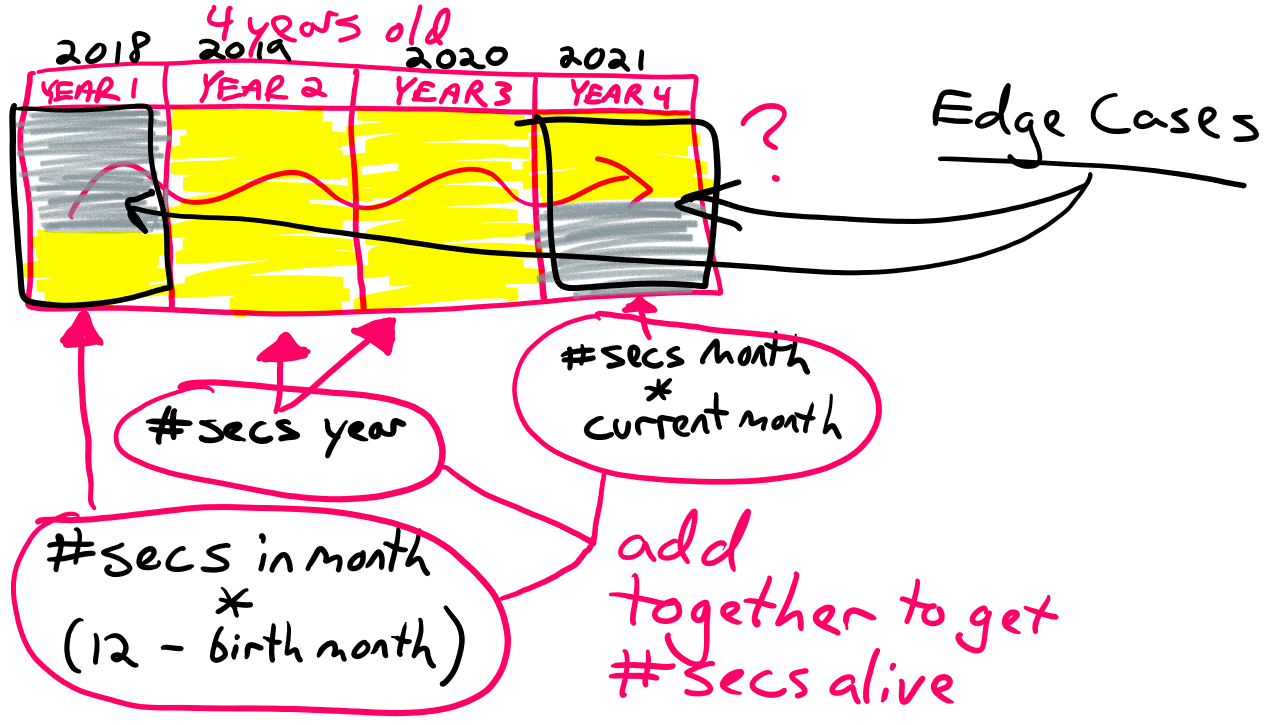 4 years old
2018 2019 2020 2021
YEAR 1 YEAR 2 YEAR 3 YEAR 4
?
Edge Cases
#secs month
*
current month
#secs year
#secs in month
*
(12 - birth month)
add
together to get
#secs alive